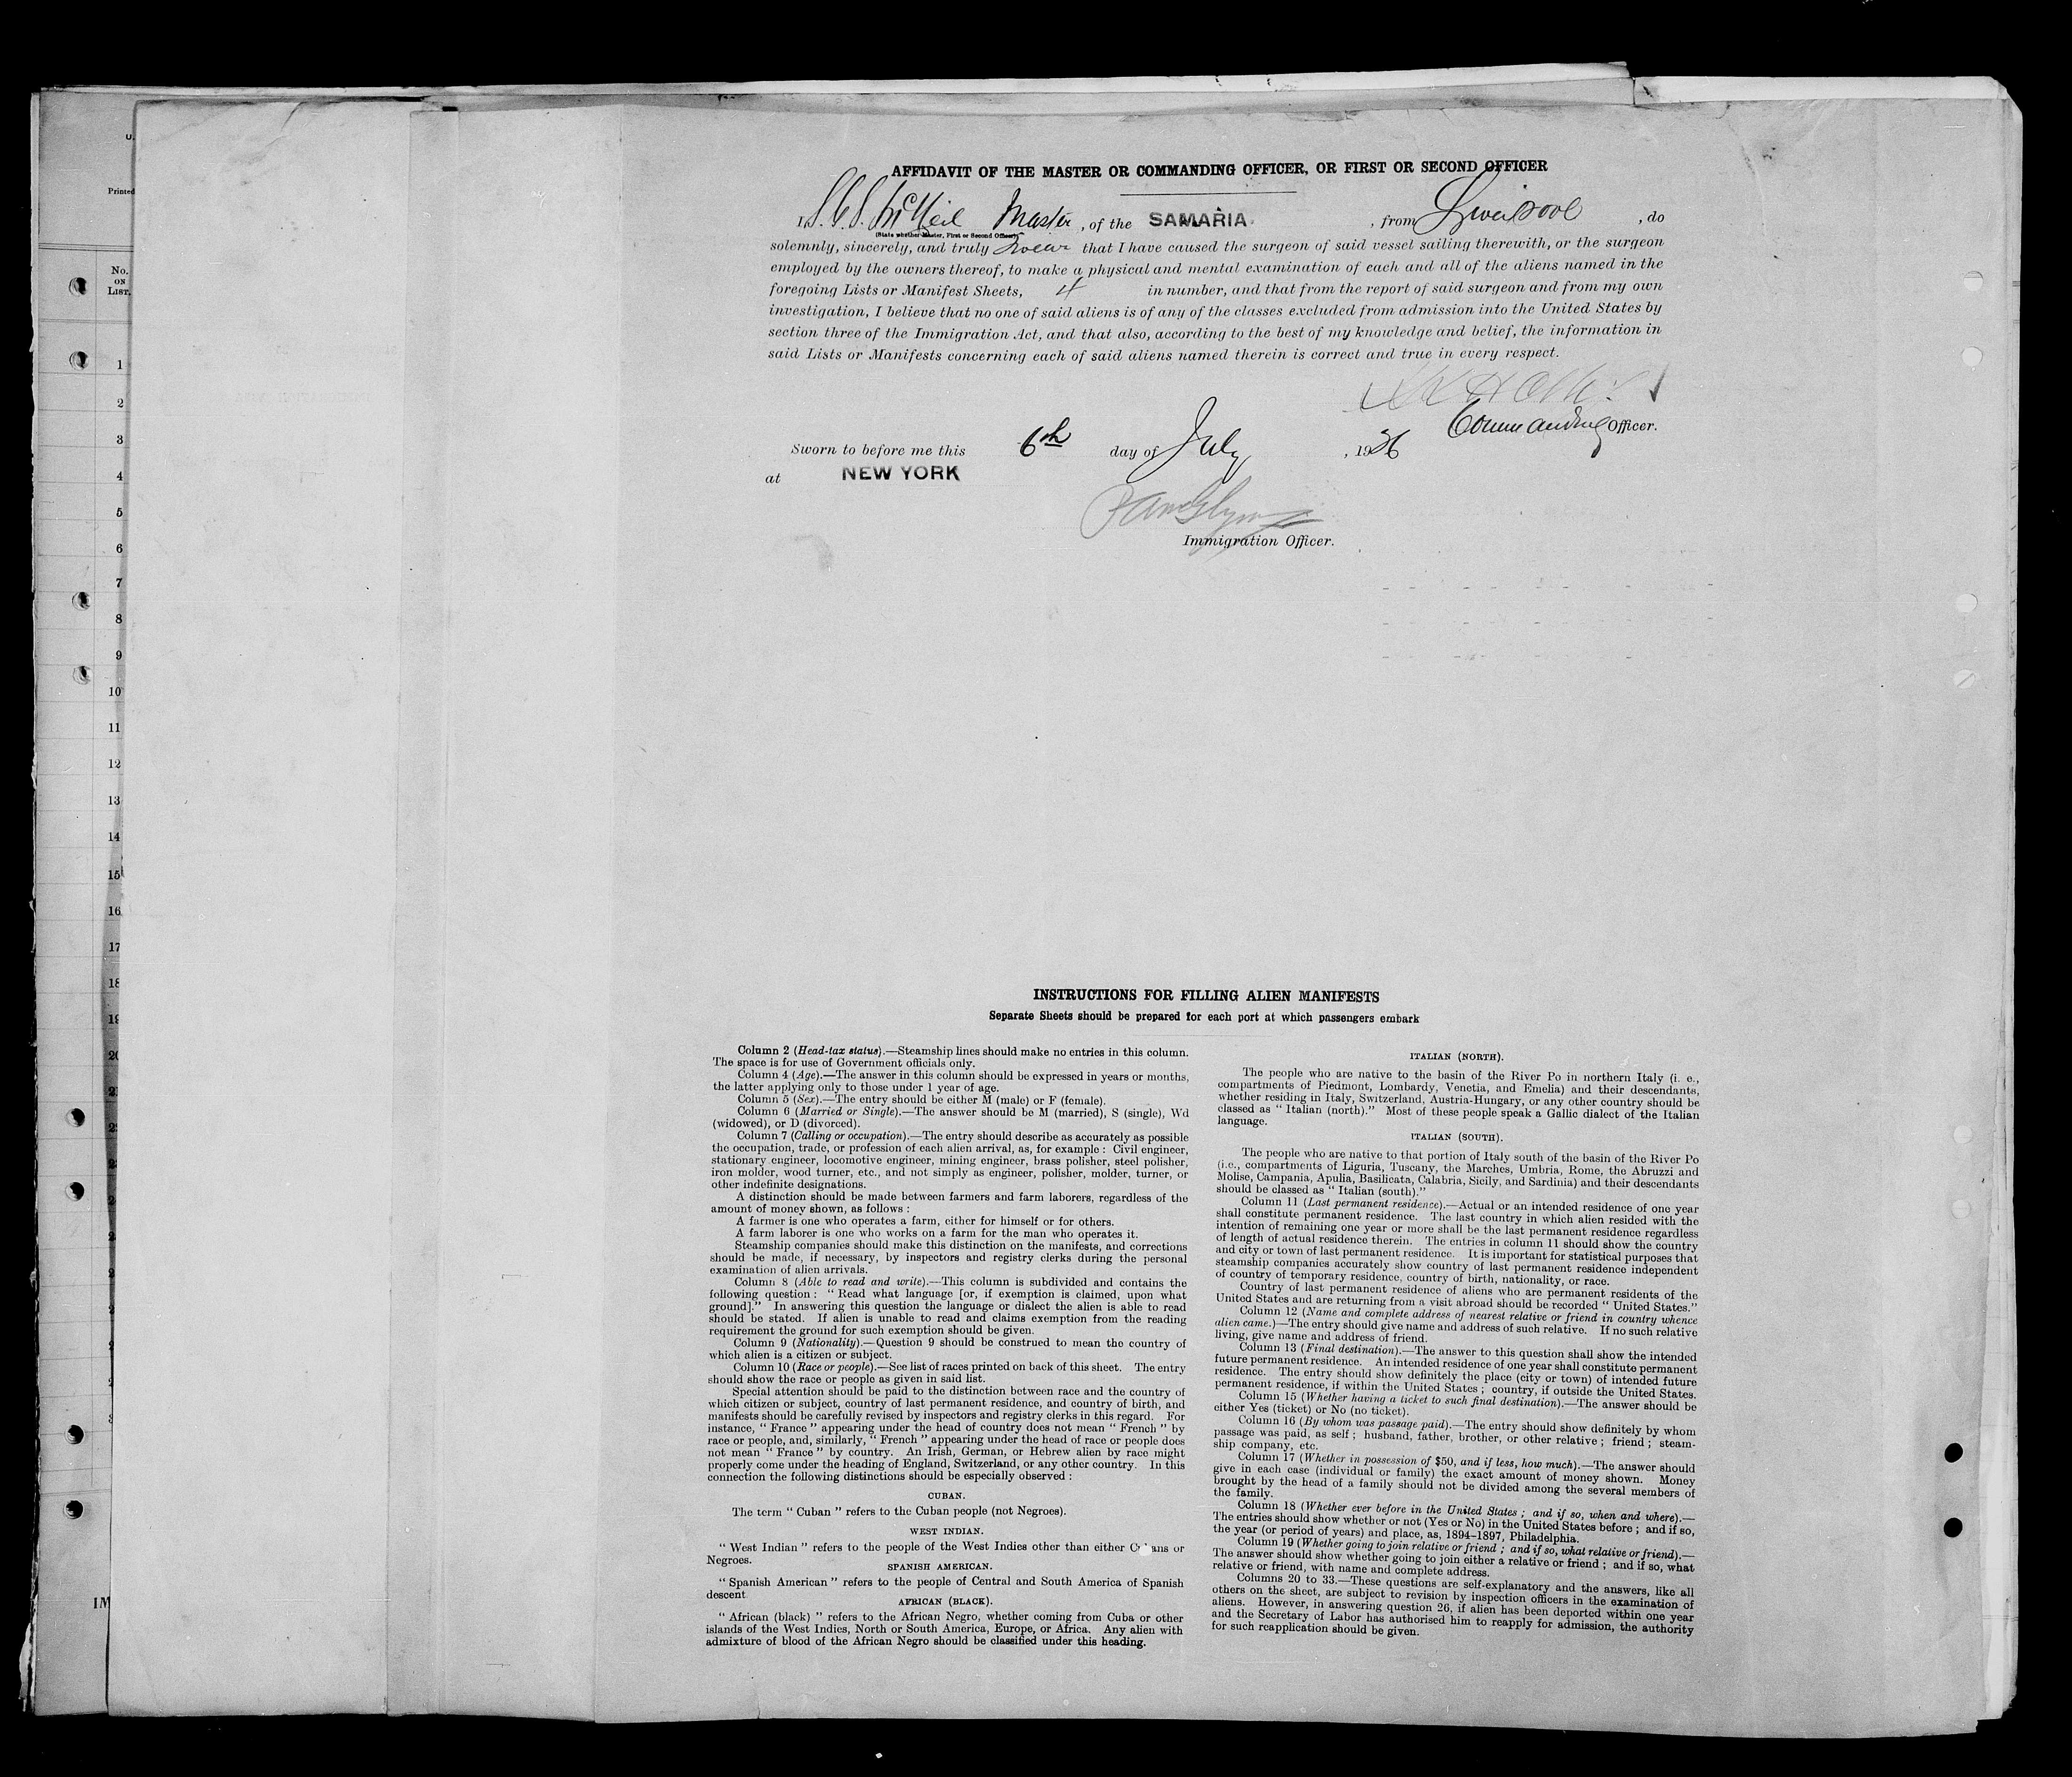 U.
Printed
No.
ON
LIST.
1
2
3
4
5
6
7
8
9
10
11
12
13
14
15
16
17
18
19
20
IM
AFFIDAVIT OF THE MASTER OR COMMANDING OFFICER, OR FIRST OR SECOND OFFICER
I, S. G. S. McNeil Master, of the SAMARIA, from Liverpool, do
(State whether Master, First or Second Officer)
solemnly, sincerely, and truly swear that I have caused the surgeon of said vessel sailing therewith, or the surgeon
employed by the owners thereof, to make a physical and mental examination of each and all of the aliens named in the
foregoing Lists or Manifest Sheets, 4 in number, and that from the report of said surgeon and from my own
investigation, I believe that no one of said aliens is of any of the classes excluded from admission into the United States by
section three of the Immigration Act, and that also, according to the best of my knowledge and belief, the information in
said Lists or Manifests concerning each of said aliens named therein is correct and true in every respect.
Commanding Officer.
Sworn to before me this 6th day of July, 1926
at NEW YORK
Immigration Officer.
INSTRUCTIONS FOR FILLING ALIEN MANIFESTS
Separate Sheets should be prepared for each port at which passengers embark
Column 2 (Head-tax status).—Steamship lines should make no entries in this column.
The space is for use of Government officials only.
Column 4 (Age).—The answer in this column should be expressed in years or months,
the latter applying only to those under 1 year of age.
Column 5 (Sex).—The entry should be either M (male) or F (female).
Column 6 (Married or Single).—The answer should be M (married), S (single), Wd
(widowed), or D (divorced).
Column 7 (Calling or occupation).—The entry should describe as accurately as possible
the occupation, trade, or profession of each alien arrival, as, for example : Civil engineer,
stationary engineer, locomotive engineer, mining engineer, brass polisher, steel polisher,
iron molder, wood turner, etc., and not simply as engineer, polisher, molder, turner, or
other indefinite designations.
A distinction should be made between farmers and farm laborers, regardless of the
amount of money shown, as follows :
A farmer is one who operates a farm, either for himself or for others.
A farm laborer is one who works on a farm for the man who operates it.
Steamship companies should make this distinction on the manifests, and corrections
should be made, if necessary, by inspectors and registry clerks during the personal
examination of alien arrivals.
Column 8 (Able to read and write).—This column is subdivided and contains the
following question : " Read what language [or, if exemption is claimed, upon what
ground]." In answering this question the language or dialect the alien is able to read
should be stated. If alien is unable to read and claims exemption from the reading
requirement the ground for such exemption should be given.
Column 9 (Nationality).—Question 9 should be construed to mean the country of
which alien is a citizen or subject.
Column 10 (Race or people).—See list of races printed on back of this sheet. The entry
should show the race or people as given in said list.
Special attention should be paid to the distinction between race and the country of
which citizen or subject, country of last permanent residence, and country of birth, and
manifests should be carefully revised by inspectors and registry clerks in this regard. For
instance, " France " appearing under the head of country does not mean " French " by
race or people, and, similarly, " French " appearing under the head of race or people does
not mean " France " by country. An Irish, German, or Hebrew alien by race might
properly come under the heading of England, Switzerland, or any other country. In this
connection the following distinctions should be especially observed :
CUBAN.
The term " Cuban " refers to the Cuban people (not Negroes).
WEST INDIAN.
" West Indian " refers to the people of the West Indies other than either Cubans or
Negroes.
SPANISH AMERICAN.
" Spanish American " refers to the people of Central and South America of Spanish
descent
AFRICAN (BLACK).
" African (black) " refers to the African Negro, whether coming from Cuba or other
islands of the West Indies, North or South America, Europe, or Africa. Any alien with
admixture of blood of the African Negro should be classified under this heading.
ITALIAN (NORTH).
The people who are native to the basin of the River Po in northern Italy (i. e.,
compartments of Piedmont, Lombardy, Venetia, and Emelia) and their descendants,
whether residing in Italy, Switzerland, Austria-Hungary, or any other country should be
classed as " Italian (north)." Most of these people speak a Gallic dialect of the Italian
language.
ITALIAN (SOUTH).
The people who are native to that portion of Italy south of the basin of the River Po
(i.e., compartments of Liguria, Tuscany, the Marches, Umbria, Rome, the Abruzzi and
Molise, Campania, Apulia, Basilicata, Calabria, Sicily, and Sardinia) and their descendants
should be classed as " Italian (south)."
Column 11 (Last permanent residence).—Actual or an intended residence of one year
shall constitute permanent residence. The last country in which alien resided with the
intention of remaining one year or more shall be the last permanent residence regardless
of length of actual residence therein. The entries in column 11 should show the country
and city or town of last permanent residence. It is important for statistical purposes that
steamship companies accurately show country of last permanent residence independent
of country of temporary residence, country of birth, nationality, or race.
Country of last permanent residence of aliens who are permanent residents of the
United States and are returning from a visit abroad should be recorded " United States."
Column 12 (Name and complete address of nearest relative or friend in country whence
alien came.)—The entry should give name and address of such relative. If no such relative
living, give name and address of friend.
Column 13 (Final destination).—The answer to this question shall show the intended
future permanent residence. An intended residence of one year shall constitute permanent
residence. The entry should show definitely the place (city or town) of intended future
permanent residence, if within the United States ; country, if outside the United States.
Column 15 (Whether having a ticket to such final destination).—The answer should be
either Yes (ticket) or No (no ticket).
Column 16 (By whom was passage paid).—The entry should show definitely by whom
passage was paid, as self ; husband, father, brother, or other relative ; friend ; steam-
ship company, etc.
Column 17 (Whether in possession of $50, and if less, how much).—The answer should
give in each case (individual or family) the exact amount of money shown. Money
brought by the head of a family should not be divided among the several members of
the family.
Column 18 (Whether ever before in the United States ; and if so, when and where).—
The entries should show whether or not (Yes or No) in the United States before ; and if so,
the year (or period of years) and place, as, 1894-1897, Philadelphia.
Column 19 (Whether going to join relative or friend ; and if so, what relative or friend).—
The answer should show whether going to join either a relative or friend ; and if so, what
relative or friend, with name and complete address.
Columns 20 to 33.—These questions are self-explanatory and the answers, like all
others on the sheet, are subject to revision by inspection officers in the examination of
aliens. However, in answering question 26, if alien has been deported within one year
and the Secretary of Labor has authorised him to reapply for admission, the authority
for such reapplication should be given.